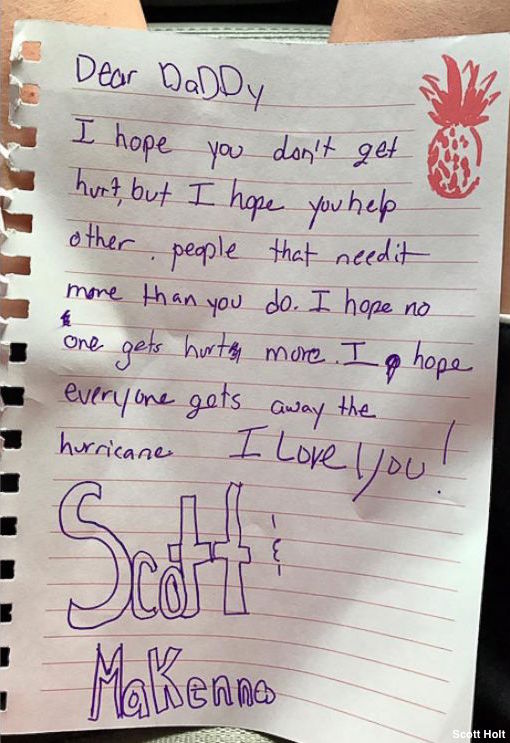 Dear DaDDy
I hope you don't get
hurt, but I hope you help
other. people that need it
more than you do. I hope no
one gets hurt more. I hope
everyone gets away the
hurricane I Love you!
Scott &
MaKenna
Scott Holt